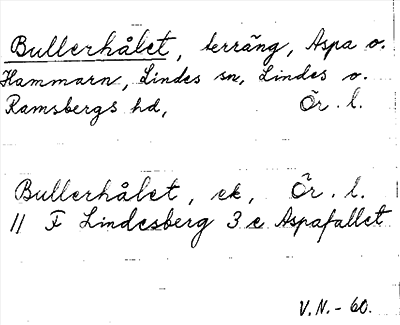 Bullerhålet, terräng, Aspa o.
Hammarn, Lindes sn, Lindes o.
Ramsbergs hd, Ör. l.
Bullerhålet, ek, Ör. l.
11 F Lindesberg 3 e Aspafallet
V.N.-60.